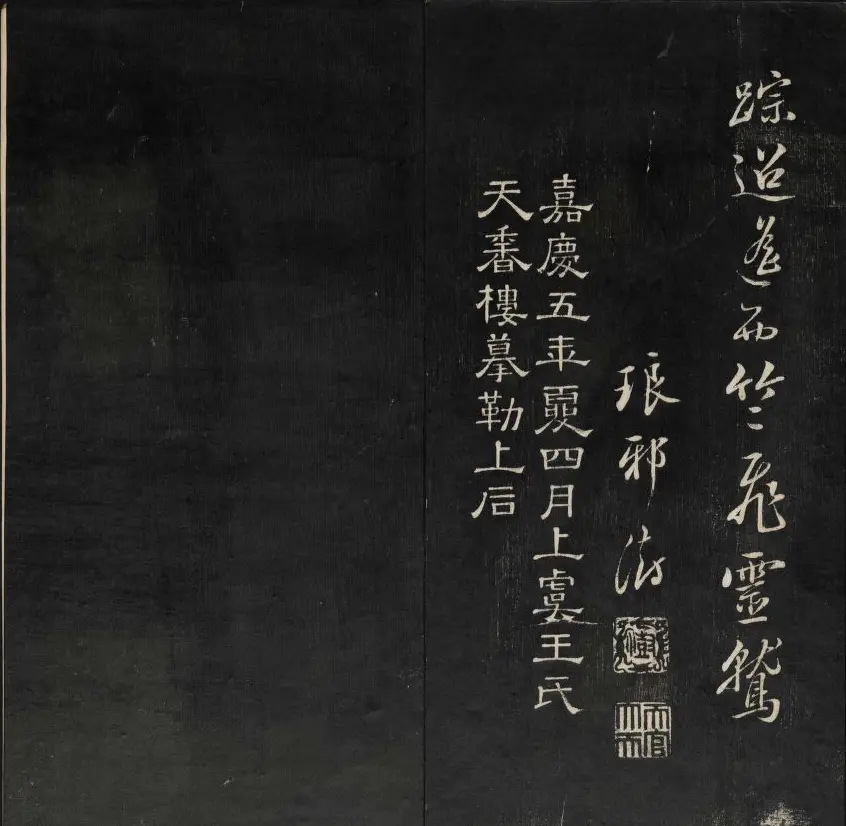 踪迢遞西竺飛靈鷲
琅邪澍
嘉慶五年夏四月上虞王氏
天香樓摹勒上石